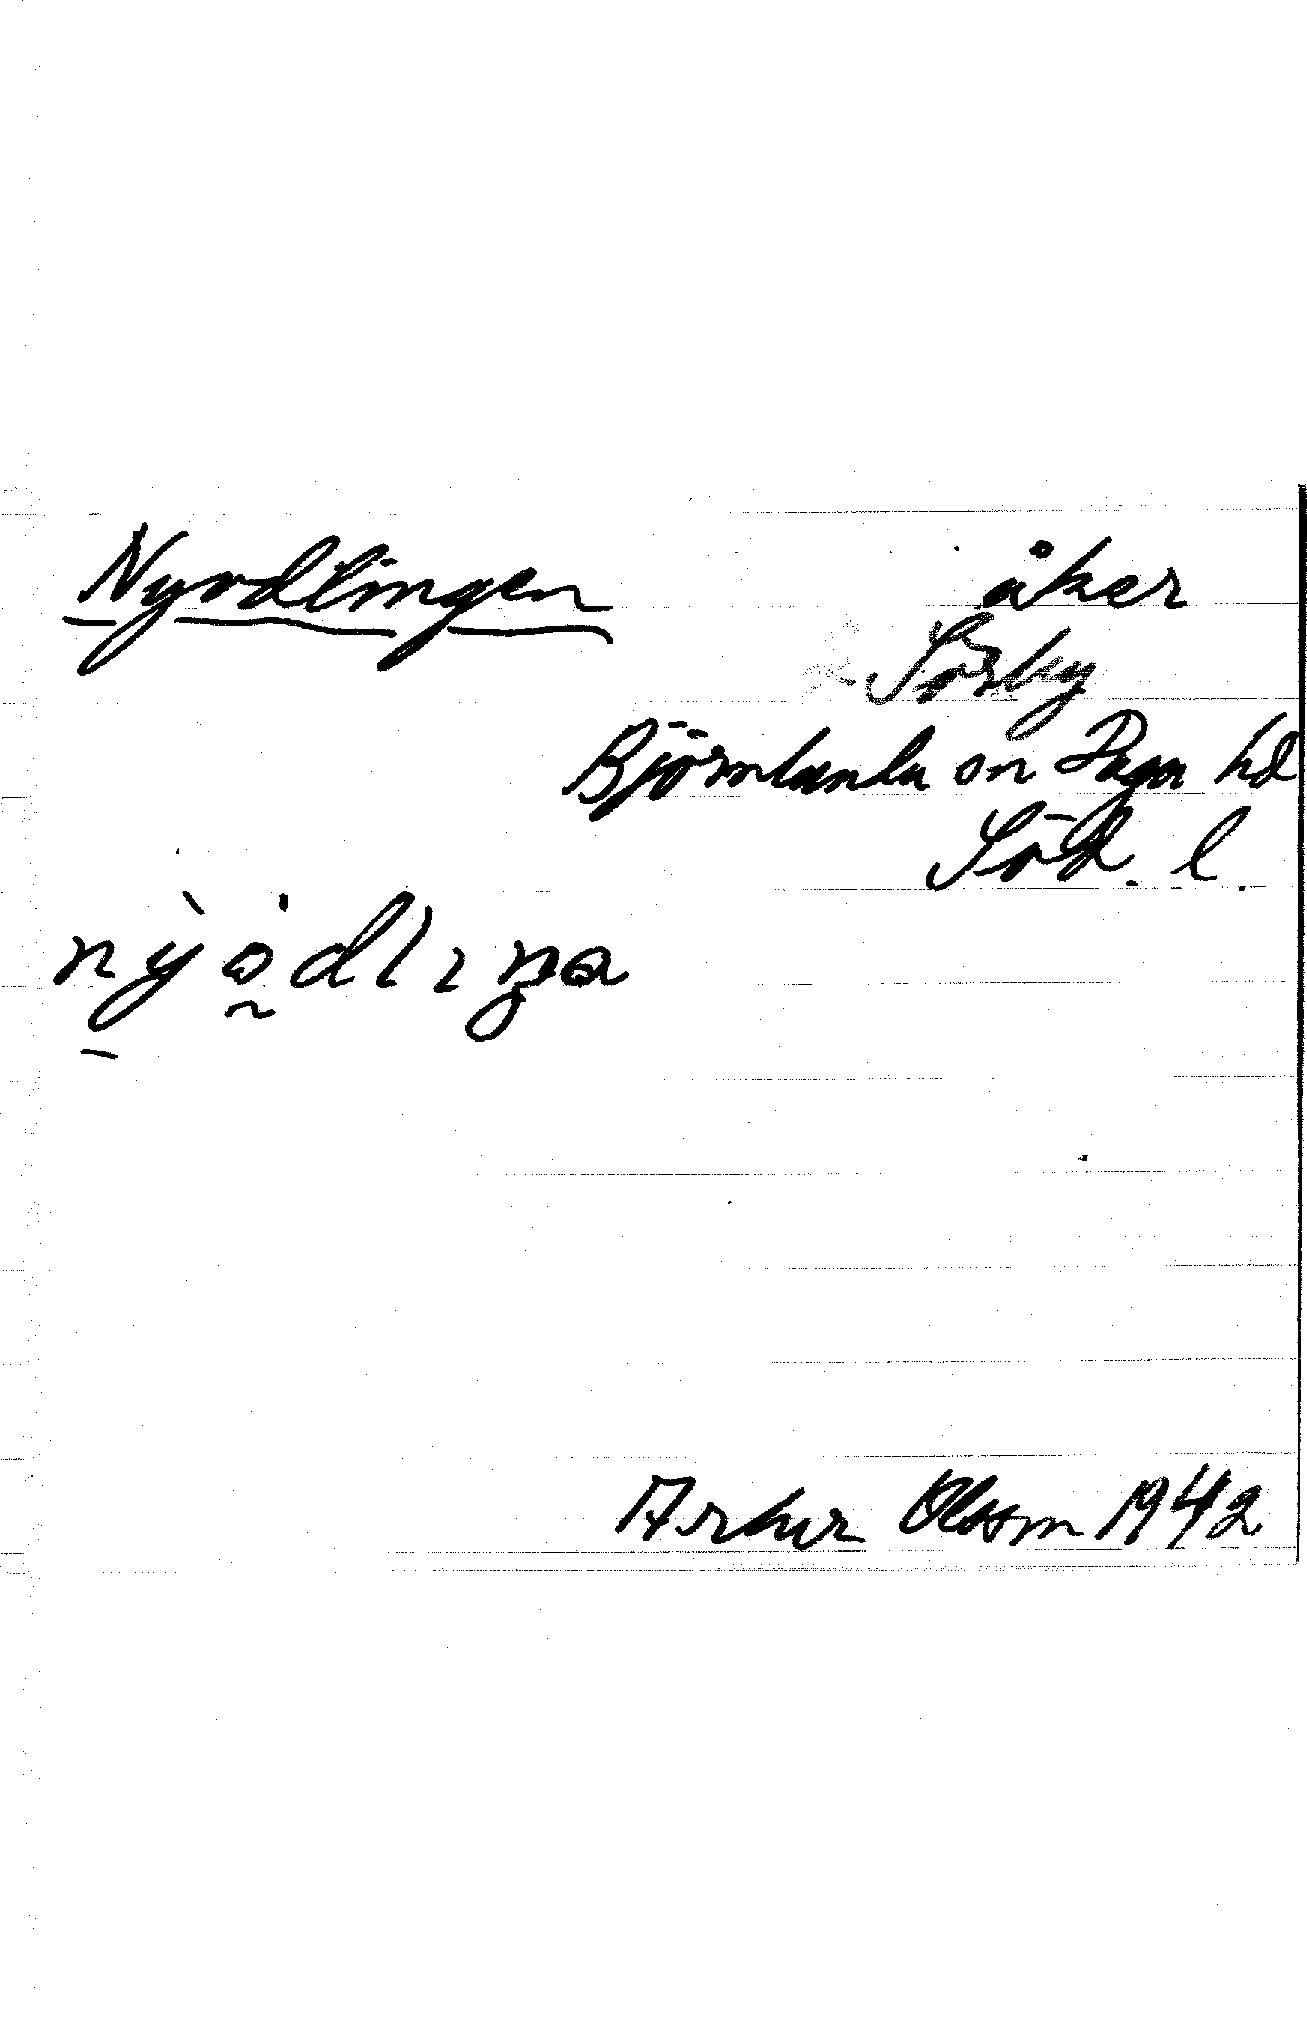 Nyodlingen åker
Sörby
Björnlunda sn Daga hd
Söd. l.
Artur Olsson 1942